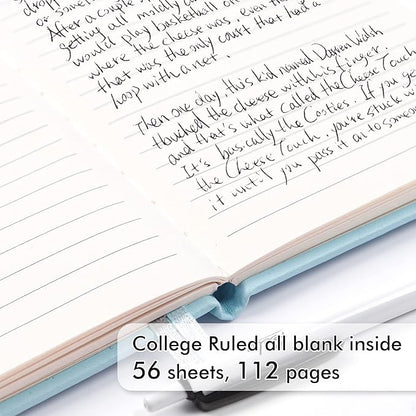 After a couple
getting all mildly
would play basketball on
where the cheese was, even
that was the only court that had a
hoop with a net.
Then one day, this kid named Darren Walsh
touched the cheese with his finger,
and that's what called the Cheese Touch
It's basically the Cooties. If you get
the Cheese Touch, you're stuck w
it until you pass it on to someo
College Ruled all blank inside
56 sheets, 112 pages